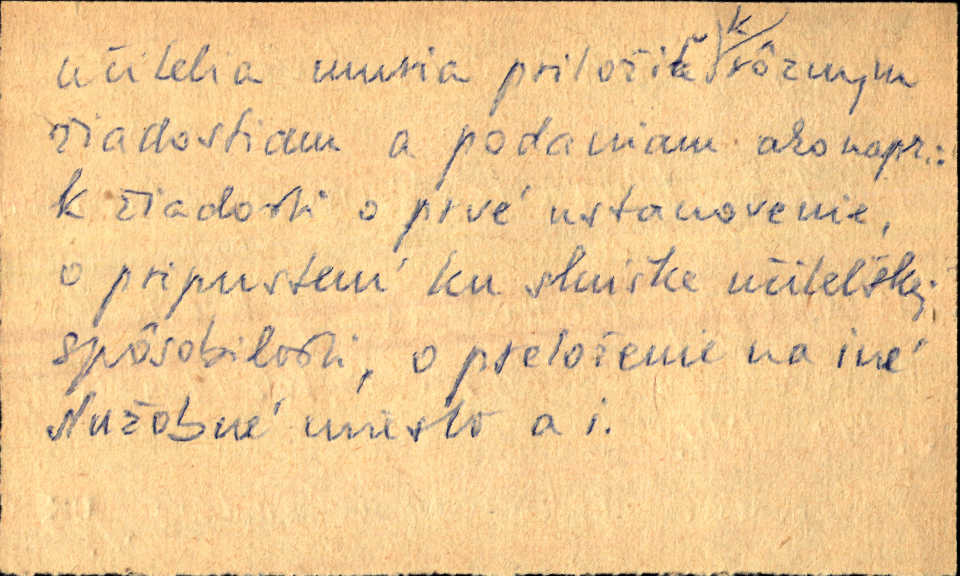 učitelia musia priložiť k rôznym
žiadostiam a podaniam ako napr.:
k žiadosti o prvé ustanovenie,
o pripustení ku skúške učiteľskej
spôsobilosti, o preloženie na iné
služobné miesto a i.